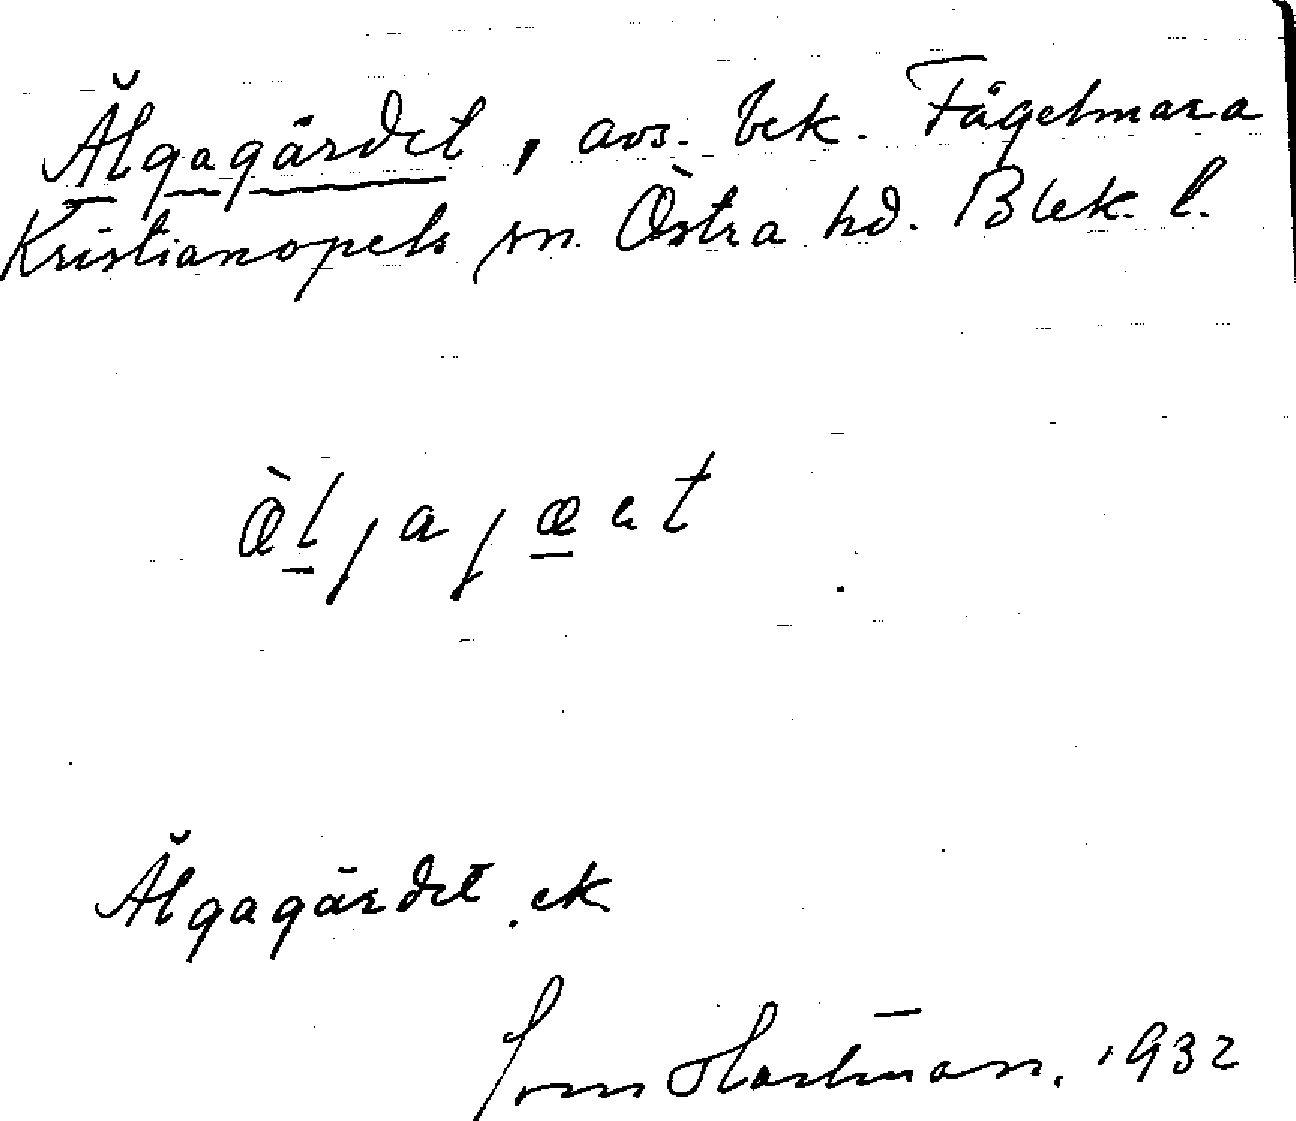 Älgagärdet, avs. bek. Fågelmara
Kristianopels sn. Östra hd. Blek. l.
Älgagärdet. ek
Hartman. 1932